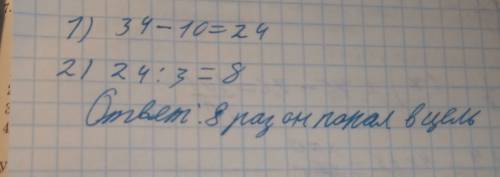 1) 34-10=24
2) 24:3=8
Ответ: 8 раз он попал в цель